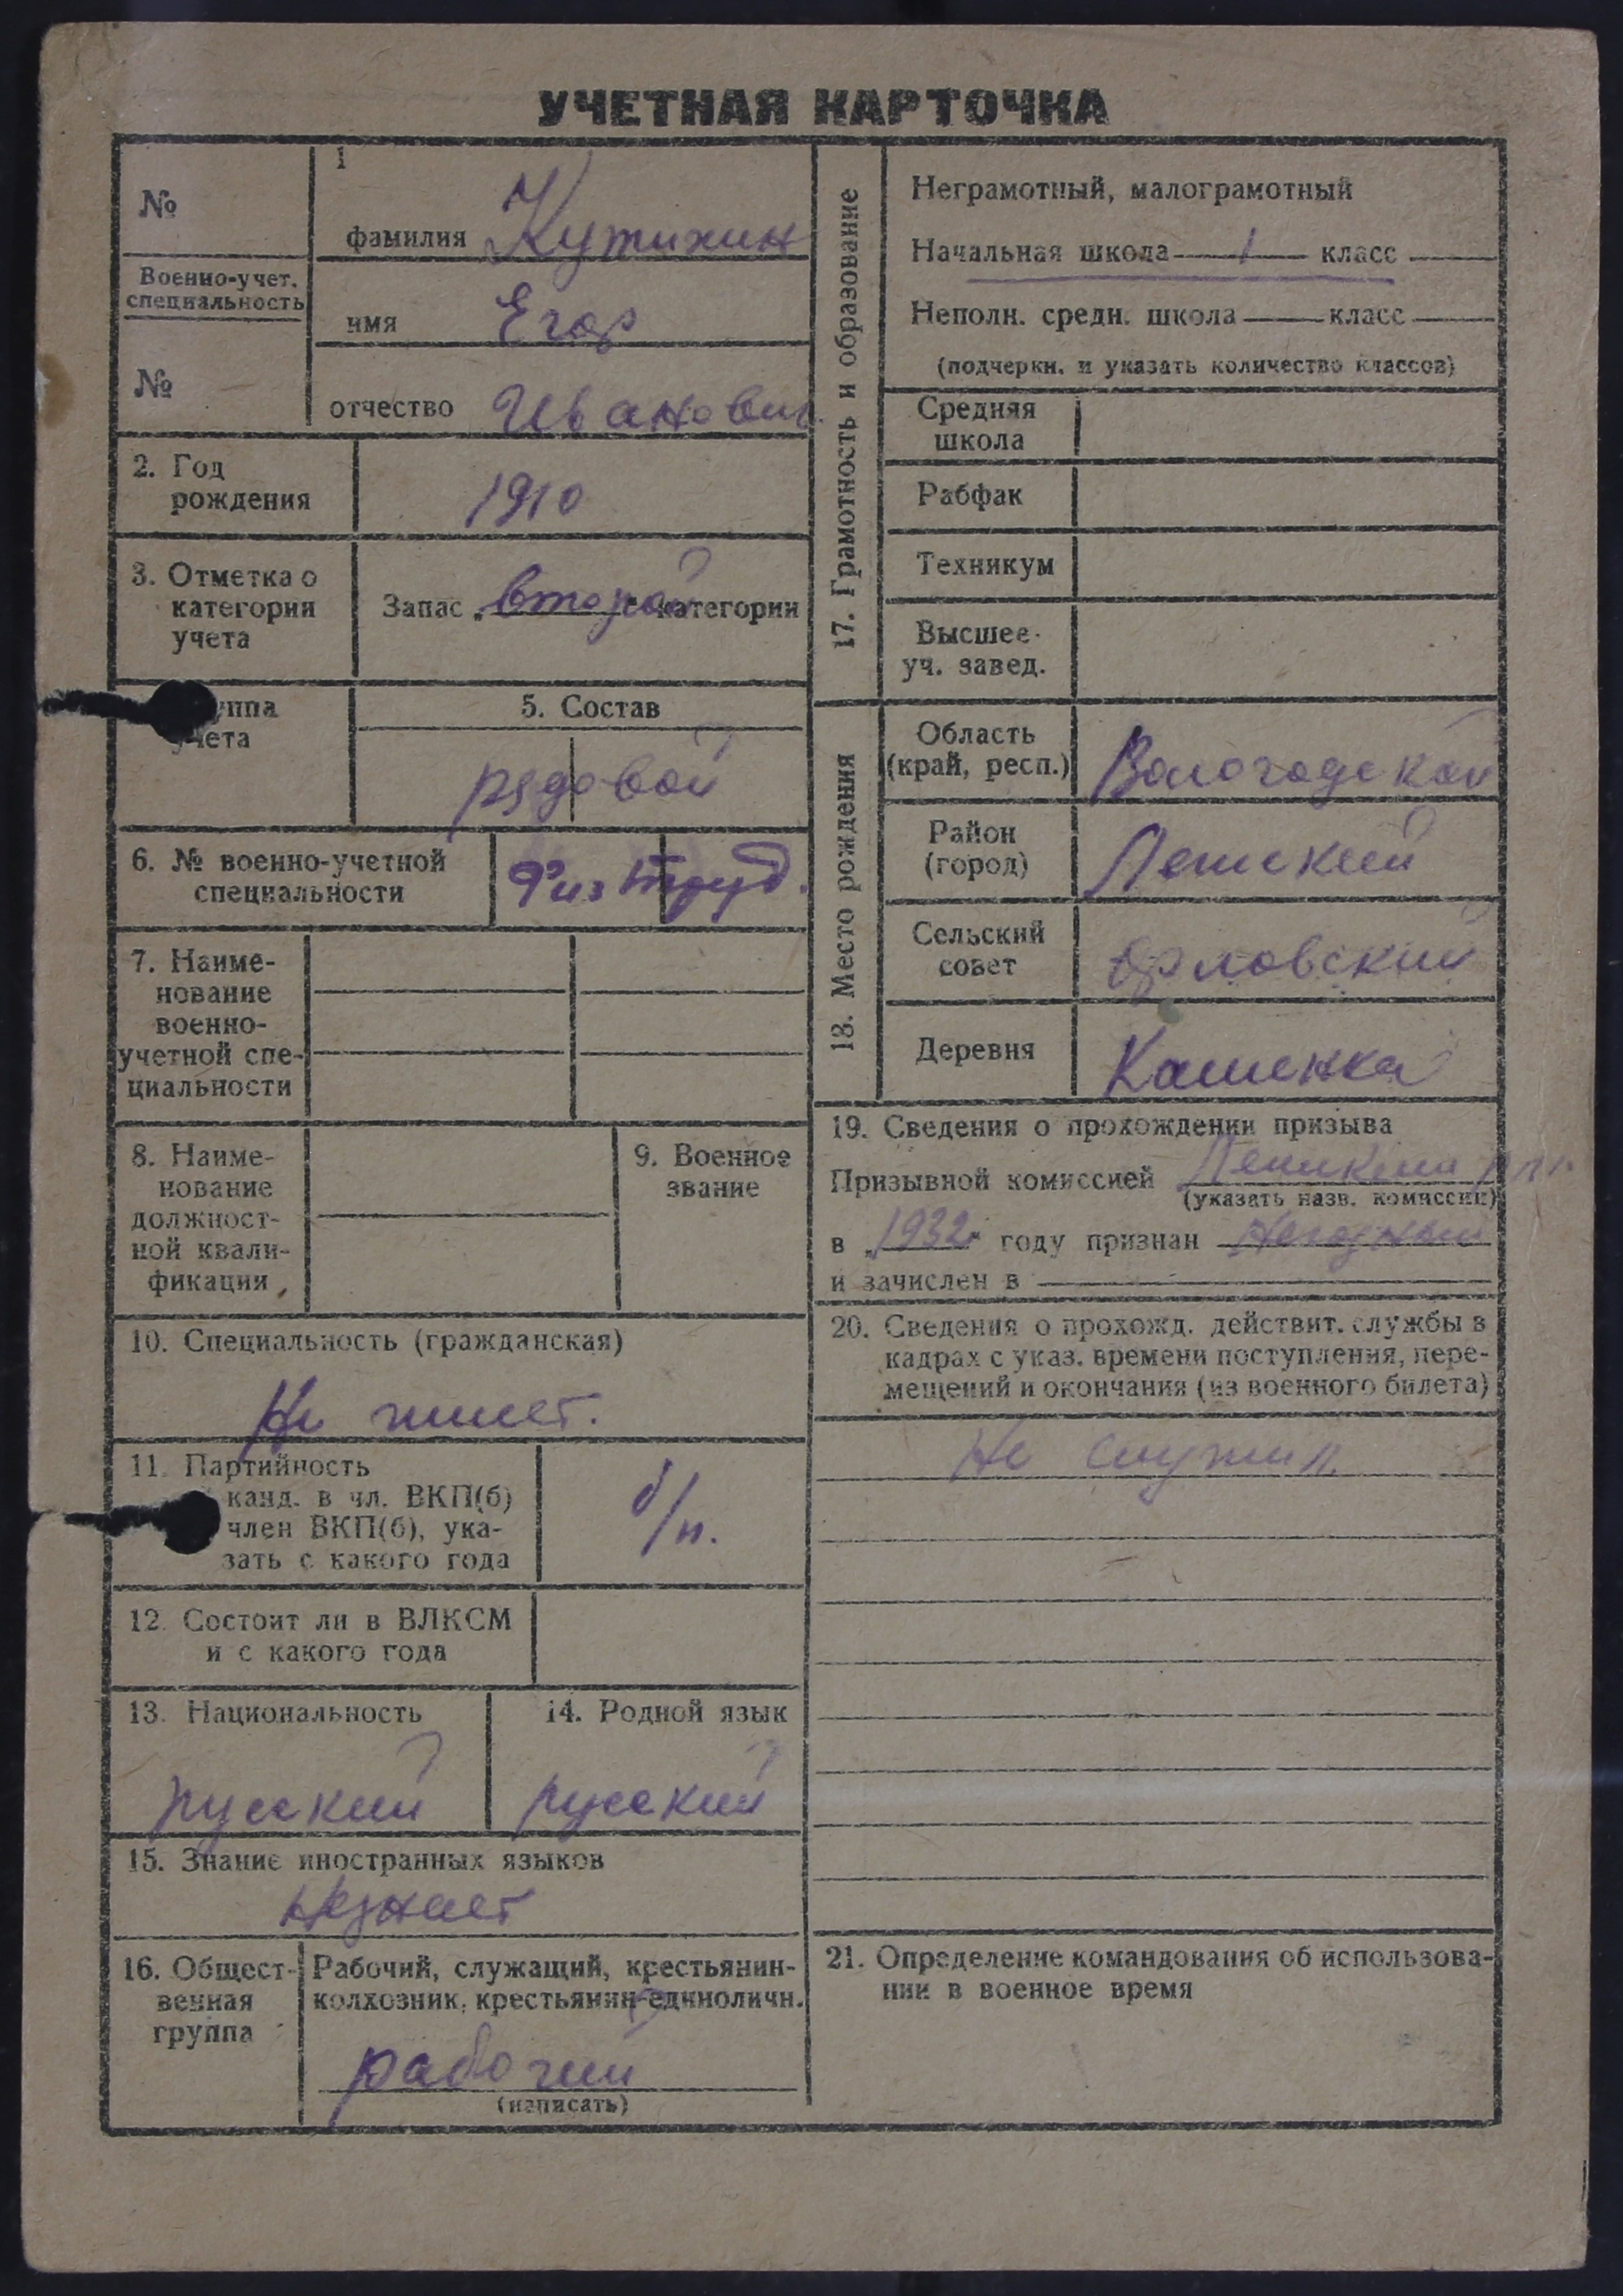 УЧЕТНАЯ КАРТОЧКА
№
Военно-учет.
специальность
№
1
фамилия Кутихин
имя Егор
отчество Иванович
2. Год
рождения
1910
3. Отметка о
категории
учета
Запас „второй категории
уппа
учета
5. Состав
рядовой
6. № военно-учетной
специальности
Физ труд.
7. Наиме-
нование
военно-
учетной спе-
циальности
8. Наиме-
нование
должност-
ной квали-
фикации
9. Военное
звание
10. Специальность (гражданская)
Не имеет.
11. Партийность
канд. в чл. ВКП(б)
член ВКП(б), ука-
зать с какого года
б/п.
12. Состоит ли в ВЛКСМ
и с какого года
13. Национальность
русский
14. Родной язык
русский
15. Знание иностранных языков
Незнает
16. Общест-
венная
группа
Рабочий, служащий, крестьянин-
колхозник, крестьянин-единоличн.
рабочий
(написать)
17. Грамотность и образование
Неграмотный, малограмотный
Начальная школа 1 класс
Неполн. средн. школа класс
(подчеркн. и указать количество классов)
Средняя
школа
Рабфак
Техникум
Высшее
уч. завед.
18. Место рождения
Область
(край, респ.)
Вологодской
Район
(город)
Сельский
совет
Орловский
Деревня
19. Сведения о прохождении призыва
Призывной комиссией
(указать назв. комиссии)
в „1932“ году признан Негодный
и зачислен в
20. Сведения о прохожд. действит. службы в
кадрах с указ. времени поступления, пере-
мещений и окончания (из военного билета)
Не служил
21. Определение командования об использова-
нии в военное время